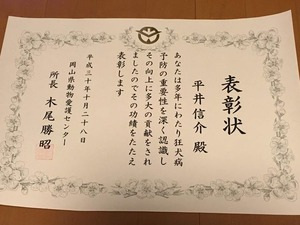 表彰状
平井信介 殿
あなたは多年にわたり狂犬病
予防の重要性を深く認識し
その向上に多大の貢献をされ
ましたのでその功績をたたえ
表彰します
平成三十年十月二十八日
岡山県動物愛護センター
所長 木尾勝昭